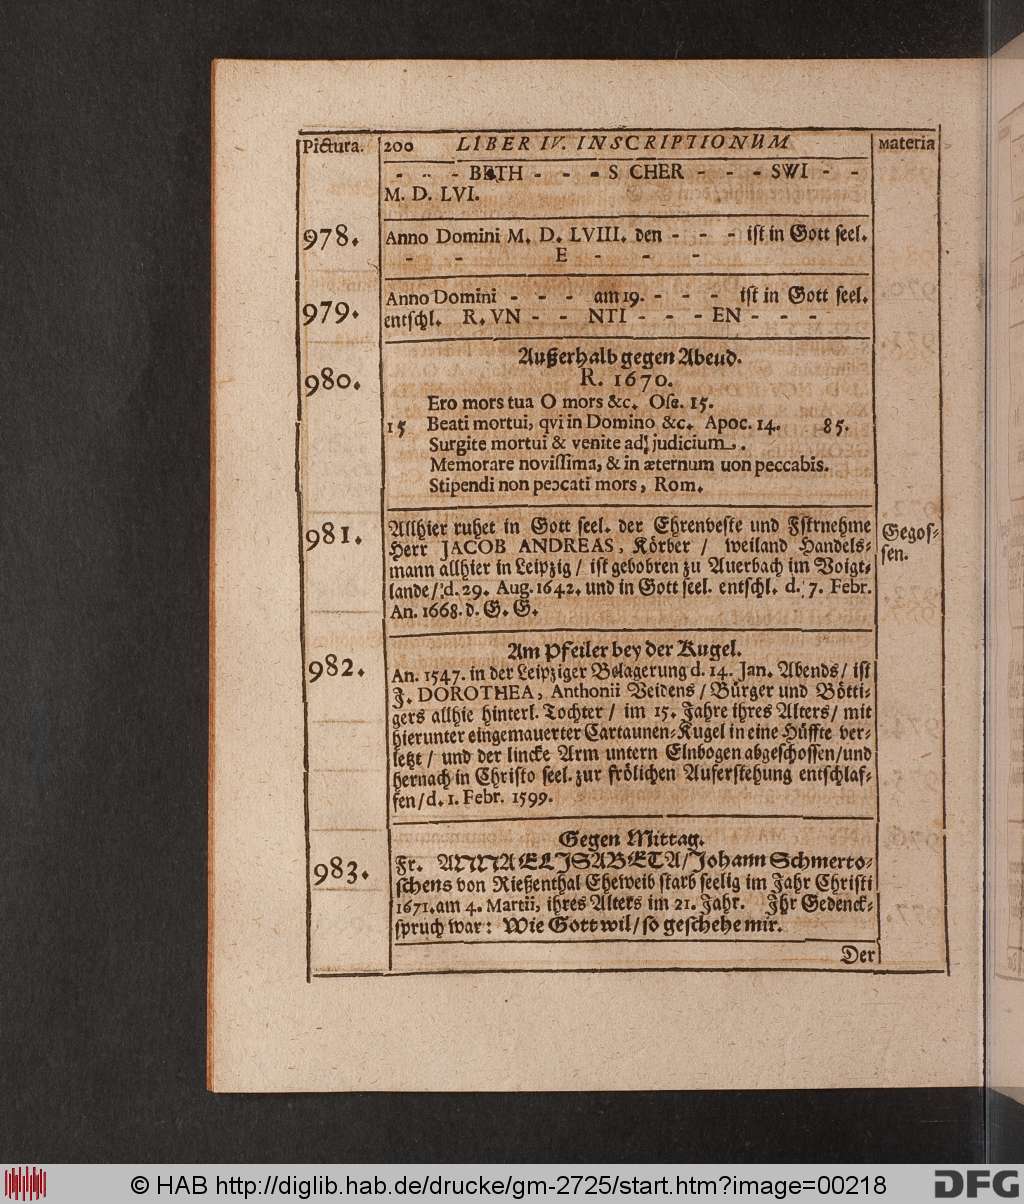 Pictura. 200 LIBER IV. INSCRIPTIONUM Materia
- - - BETH - - - S CHER - - - SWI - -
M. D. LVI.
978. Anno Domini M. D. LVIII. den - - - ist in Gott seel.
- - E - - -
979. Anno Domini - - - am 19. - - - ist in Gott seel.
entschl. R. VN - - NTI - - - EN - - -
Außerhalb gegen Abeud.
980. R. 1670.
Ero mors tua O mors &c. Ose. 15.
15 Beati mortui, qvi in Domino &c. Apoc. 14. 85.
Surgite mortui & venite ad judicium.
Memorare novissima, & in æternum uon peccabis.
Stipendi non peɔcati mors, Rom.
981. Allhier ruhet in Gott seel. der Ehrenveste und Fstrnehme Gegos-
Herr JACOB ANDREAS, Körber / weiland Handels- sen.
mann allhier in Leipzig / ist gebobren zu Auerbach im Voigt-
lande / d. 29. Aug. 1642. und in Gott seel. entschl. d. 7. Febr.
An. 1668. d. G. G.
Am Pfeiler bey der Kugel.
982. An. 1547. in der Leipziger Belagerung d. 14. Jan. Abends / ist
J. DOROTHEA, Anthonii Veidens / Bürger und Bötti-
gers allhie hinterl. Tochter / im 15. Jahre ihres Alters / mit
hierunter eingemauerter Cartaunen-Kugel in eine Hüffte ver-
letzt / und der lincke Arm untern Elnbogen abgeschossen / und
hernach in Christo seel. zur frölichen Auferstehung entschlaf-
fen / d. 1. Febr. 1599.
Gegen Mittag.
983. Fr. ANNA ELISABETA / Johann Schmerto-
schens von Rießenthal Eheweib starb seelig im Jahr Christi
1671. am 4. Martii, ihres Alters im 21. Jahr. Ihr Gedenck-
spruch war: Wie Gott wil / so geschehe mir.
Der
© HAB http://diglib.hab.de/drucke/gm-2725/start.htm?image=00218 DFG